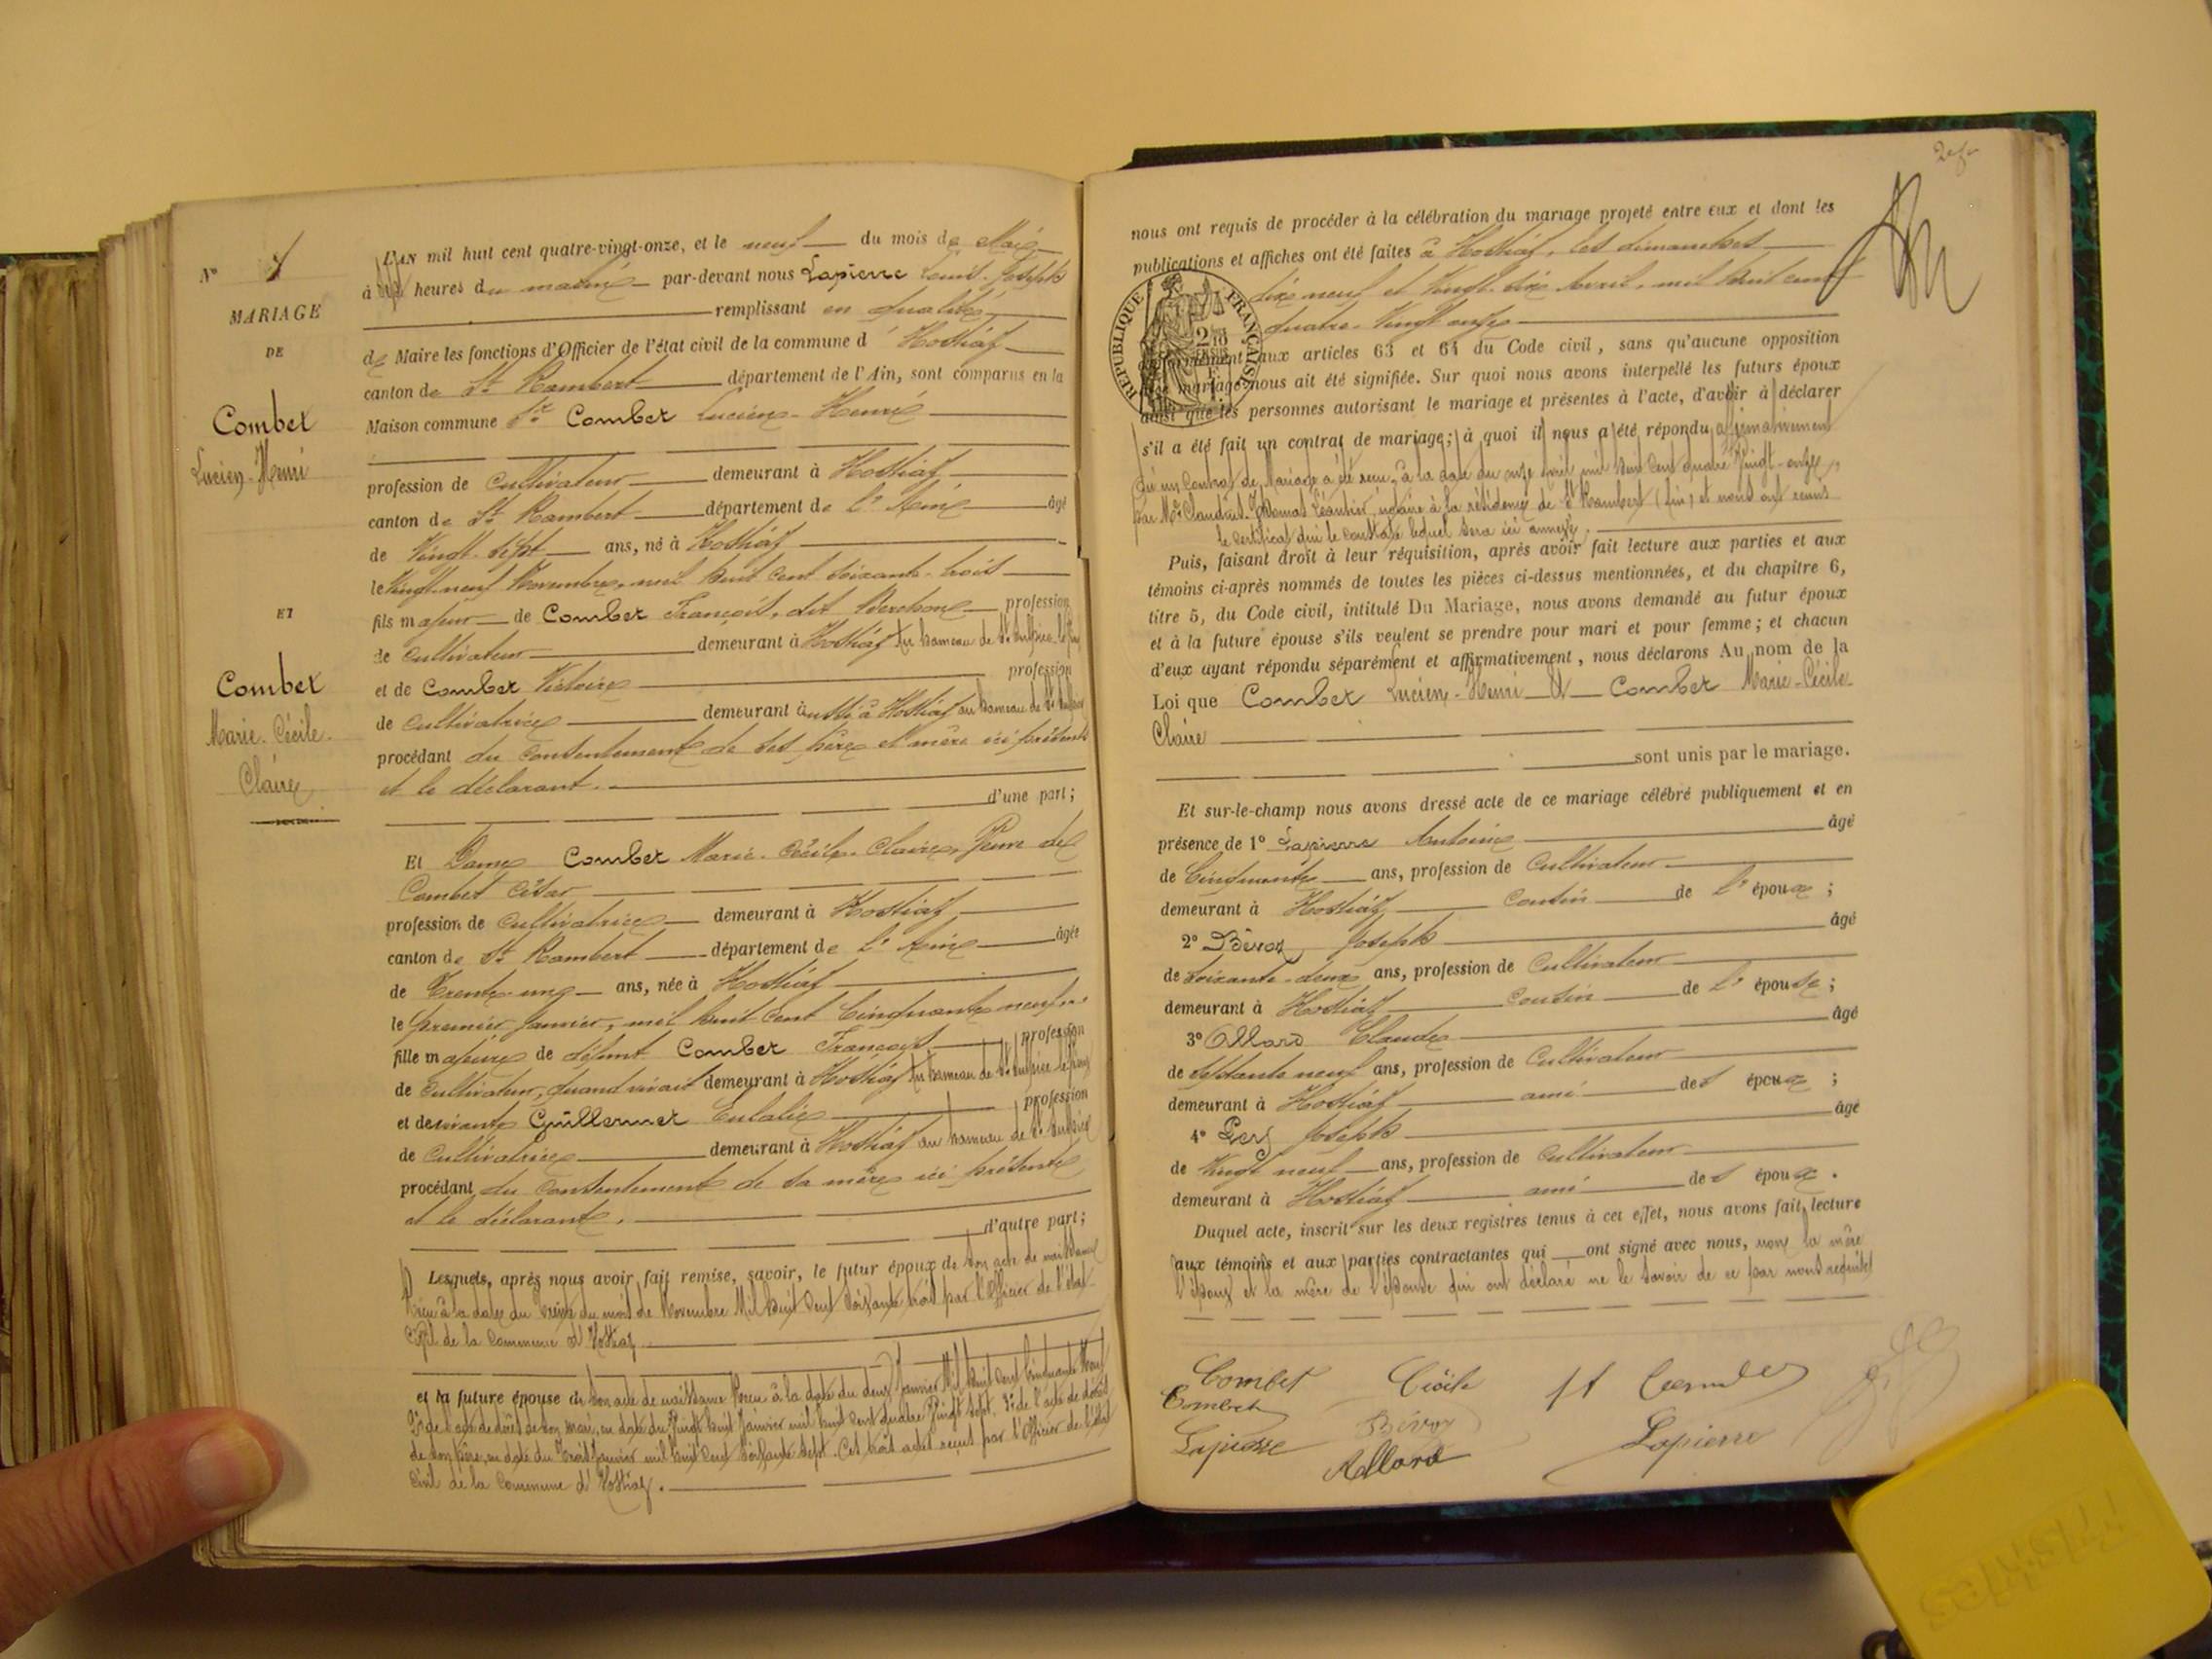 N° 4
MARIAGE
DE
Combet
Lucien-Henri
ET
Combet
Marie-Cécile-
Claire
L'AN mil huit cent quatre-vingt-onze, et le neuf du mois de Mai
à heures du matin par-devant nous Lapierre Louis-Joseph
remplissant en qualité
de Maire les fonctions d'Officier de l'état civil de la commune d' Hostiaz
canton de St Rambert département de l'Ain, sont comparus en la
Maison commune Sr Combet Lucien-Henri
profession de Cultivateur demeurant à Hostiaz
canton de St Rambert département de l'Ain âgé
de Vingt-sept ans, né à Hostiaz
le Vingt-neuf Novembre, mil huit cent soixante-trois
fils majeur de Combet François, dit Berchon profession
de cultivateur demeurant à Hostiaz au hameau de St Sulpice-le
et de Combet Victoire profession
de cultivatrice demeurant aussi à Hostiaz au hameau de St Sulpice
procédant du consentement de ses père et mère ici présents
et le déclarant.
d'une part;
Et Dame Combet Marie-Cécile-Claire, Veuve de
Combet César
profession de cultivatrice demeurant à Hostiaz
canton de St Rambert département de l'Ain âgée
de Trente-un ans, née à Hostiaz
le premier Janvier, mil huit cent Cinquante neuf
fille majeure de défunt Combet François profession
de cultivateur, quand vivait demeurant à Hostiaz au hameau de St Sulpice le
et de vivante Guillermet Eulalie profession
de Cultivatrice demeurant à Hostiaz au hameau de St Sulpice
procédant du Consentement de sa mère ici présente
et le déclarant.
d'autre part;
Lesquels, après nous avoir fait remise, savoir, le futur époux de son acte de naissance
Reçu à la date du Trente du mois de Novembre Mil huit cent soixante trois par l'Officier de l'état
Civil de la Commune d'Hostiaz
et la future épouse de son acte de naissance Reçu à la date du deux Janvier Mil huit cent Cinquante Neuf
2° de l'acte de décès de son mari, en date du Vingt huit Janvier mil huit cent quatre Vingt sept. 3° de l'acte de décès
de son père, en date du Trois Janvier mil huit cent soixante sept. Ces trois actes reçus par l'Officier de l'état
Civil de la Commune d'Hostiaz.
nous ont requis de procéder à la célébration du mariage projeté entre eux et dont les
publications et affiches ont été faites à Hostiaz, les dimanches
dix neuf et Vingt-six Avril, mil huit cent
quatre-Vingt onze
RÉPUBLIQUE FRANÇAISE
aux articles 63 et 64 du Code civil, sans qu'aucune opposition
mariage nous ait été signifiée. Sur quoi nous avons interpellé les futurs époux
ainsi que les personnes autorisant le mariage et présentes à l'acte, d'avoir à déclarer
s'il a été fait un contrat de mariage; à quoi il nous a été répondu affirmativement
qu'un Contrat de Mariage a été reçu, à la date du onze avril mil huit cent quatre Vingt-onze,
par Me Claudius-Thomas Léautier, notaire à la résidence de St Rambert (Ain) et nous ont remis
le certificat qui le constate lequel sera ici annexé.
Puis, faisant droit à leur réquisition, après avoir fait lecture aux parties et aux
témoins ci-après nommés de toutes les pièces ci-dessus mentionnées, et du chapitre 6,
titre 5, du Code civil, intitulé Du Mariage, nous avons demandé au futur époux
et à la future épouse s'ils veulent se prendre pour mari et pour femme; et chacun
d'eux ayant répondu séparément et affirmativement, nous déclarons Au nom de la
Loi que Combet Lucien-Henri et Combet Marie-Cécile-
Claire
sont unis par le mariage.
Et sur-le-champ nous avons dressé acte de ce mariage célébré publiquement et en
présence de 1° Lapierre Antoine âgé
de Cinquante ans, profession de Cultivateur
demeurant à Hostiaz cousin de l'époux;
2° Bévoz Joseph âgé
de soixante-deux ans, profession de Cultivateur
demeurant à Hostiaz cousin de l'épouse;
3° Allard Claude âgé
de septante neuf ans, profession de Cultivateur
demeurant à Hostiaz ami des époux;
4° Joseph âgé
de Vingt neuf ans, profession de Cultivateur
demeurant à Hostiaz ami des époux.
Duquel acte, inscrit sur les deux registres tenus à cet effet, nous avons fait lecture
aux témoins et aux parties contractantes qui ont signé avec nous, non la mère
l'époux et la mère de l'épouse qui ont déclaré ne le savoir de ce par nous requises
Combet Cécile
Combet Bévoz
Lapierre Allard Lapierre